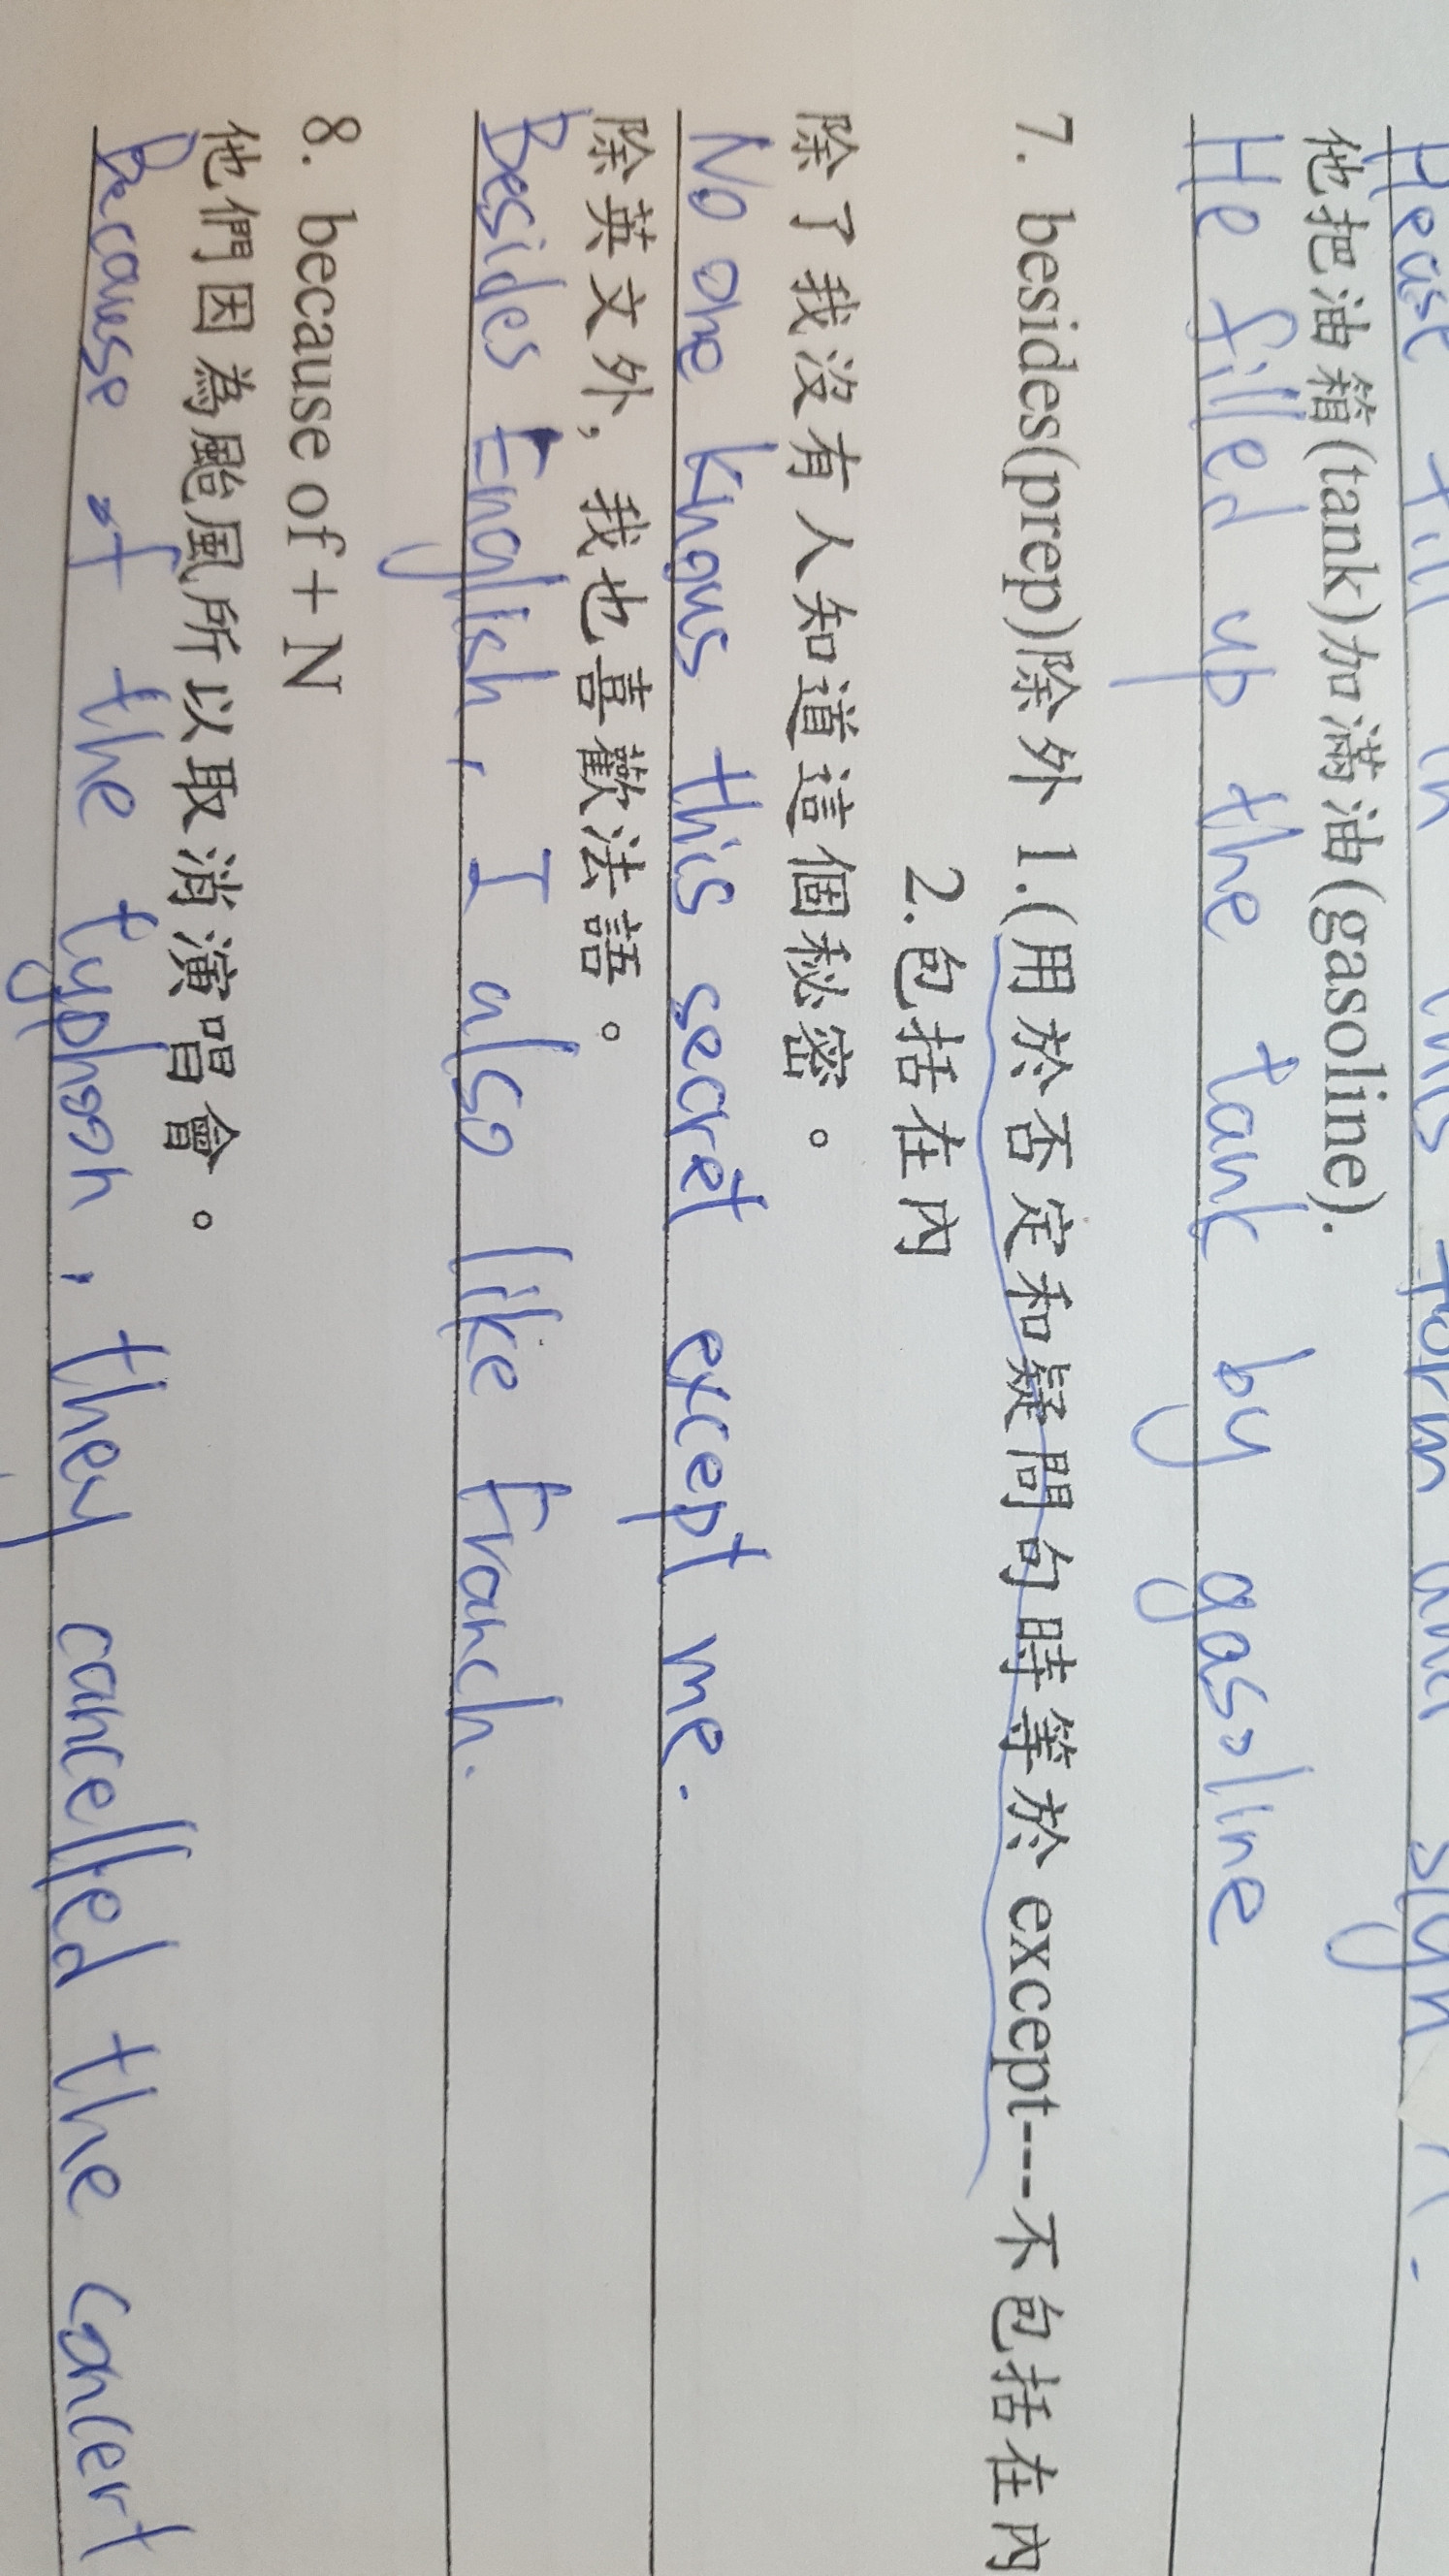 Please fill in this form and sign it.
他把油箱(tank)加滿油(gasoline).
He filled up the tank by gasoline
7. besides(prep)除外 1.(用於否定和疑問句時等於 except---不包括在內
2.包括在內
除了我沒有人知道這個秘密。
No one knows this secret except me.
除英文外，我也喜歡法語。
Besides English, I also like Franch.
8. because of + N
他們因為颱風所以取消演唱會。
Because of the typhoon, they cancelled the concert